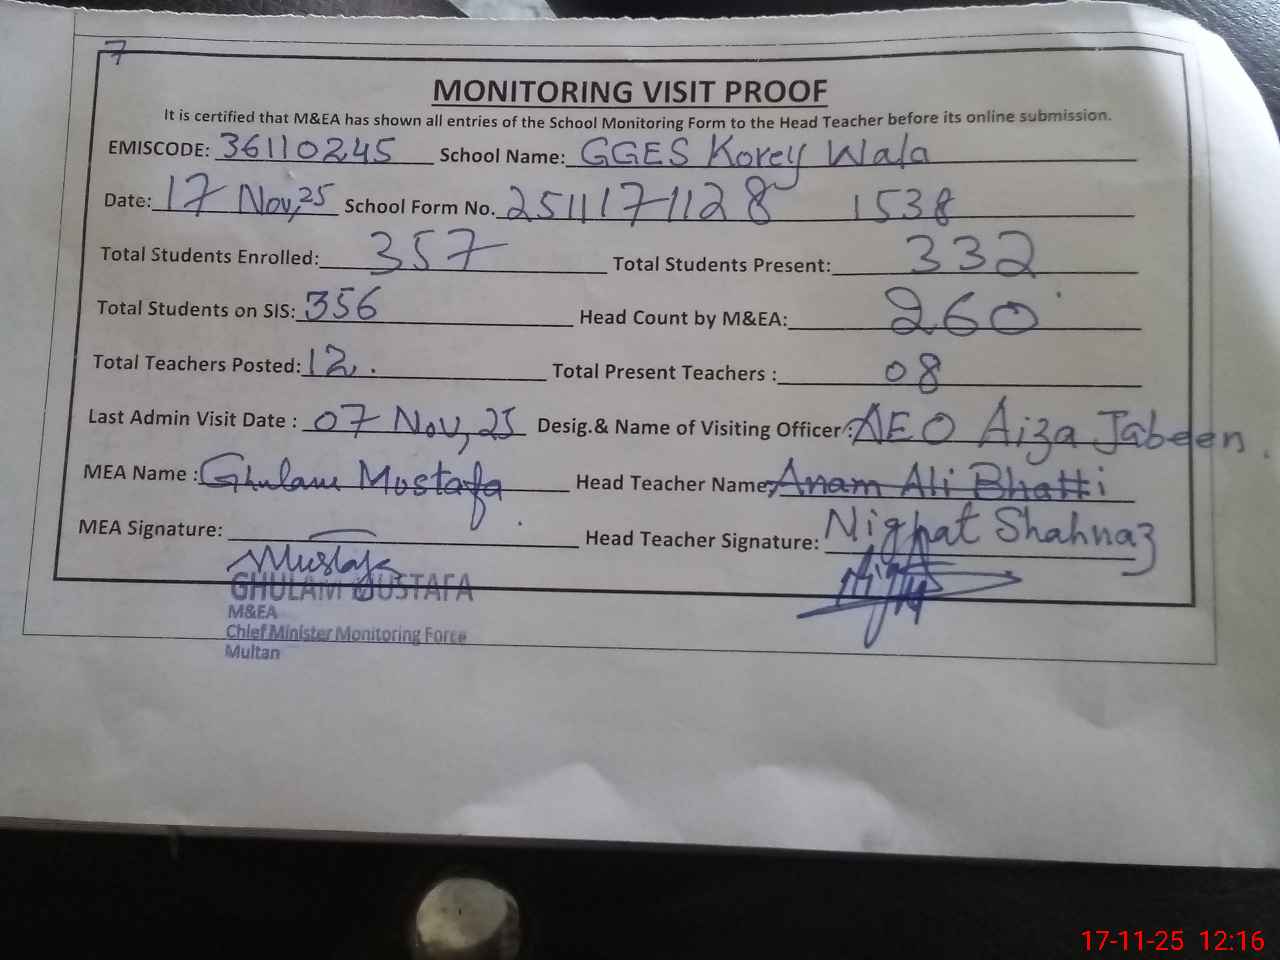 7
MONITORING VISIT PROOF
It is certified that M&EA has shown all entries of the School Monitoring Form to the Head Teacher before its online submission.
EMISCODE: 36110245 School Name: GGES Korey Wala
Date: 17 Nov,25 School Form No. 2511171128 1538
Total Students Enrolled: 357 Total Students Present: 332
Total Students on SIS: 356 Head Count by M&EA: 260
Total Teachers Posted: 12. Total Present Teachers : 08
Last Admin Visit Date : 07 Nov,25 Desig.& Name of Visiting Officer : AEO Aiza Jabeen.
MEA Name : Ghulam Mustafa Head Teacher Name: Anam Ali Bhatti
MEA Signature: Head Teacher Signature: Nighat Shahnaz
Mustafa
GHULAM MUSTAFA
M&EA
Chief Minister Monitoring Force
Multan
17-11-25 12:16